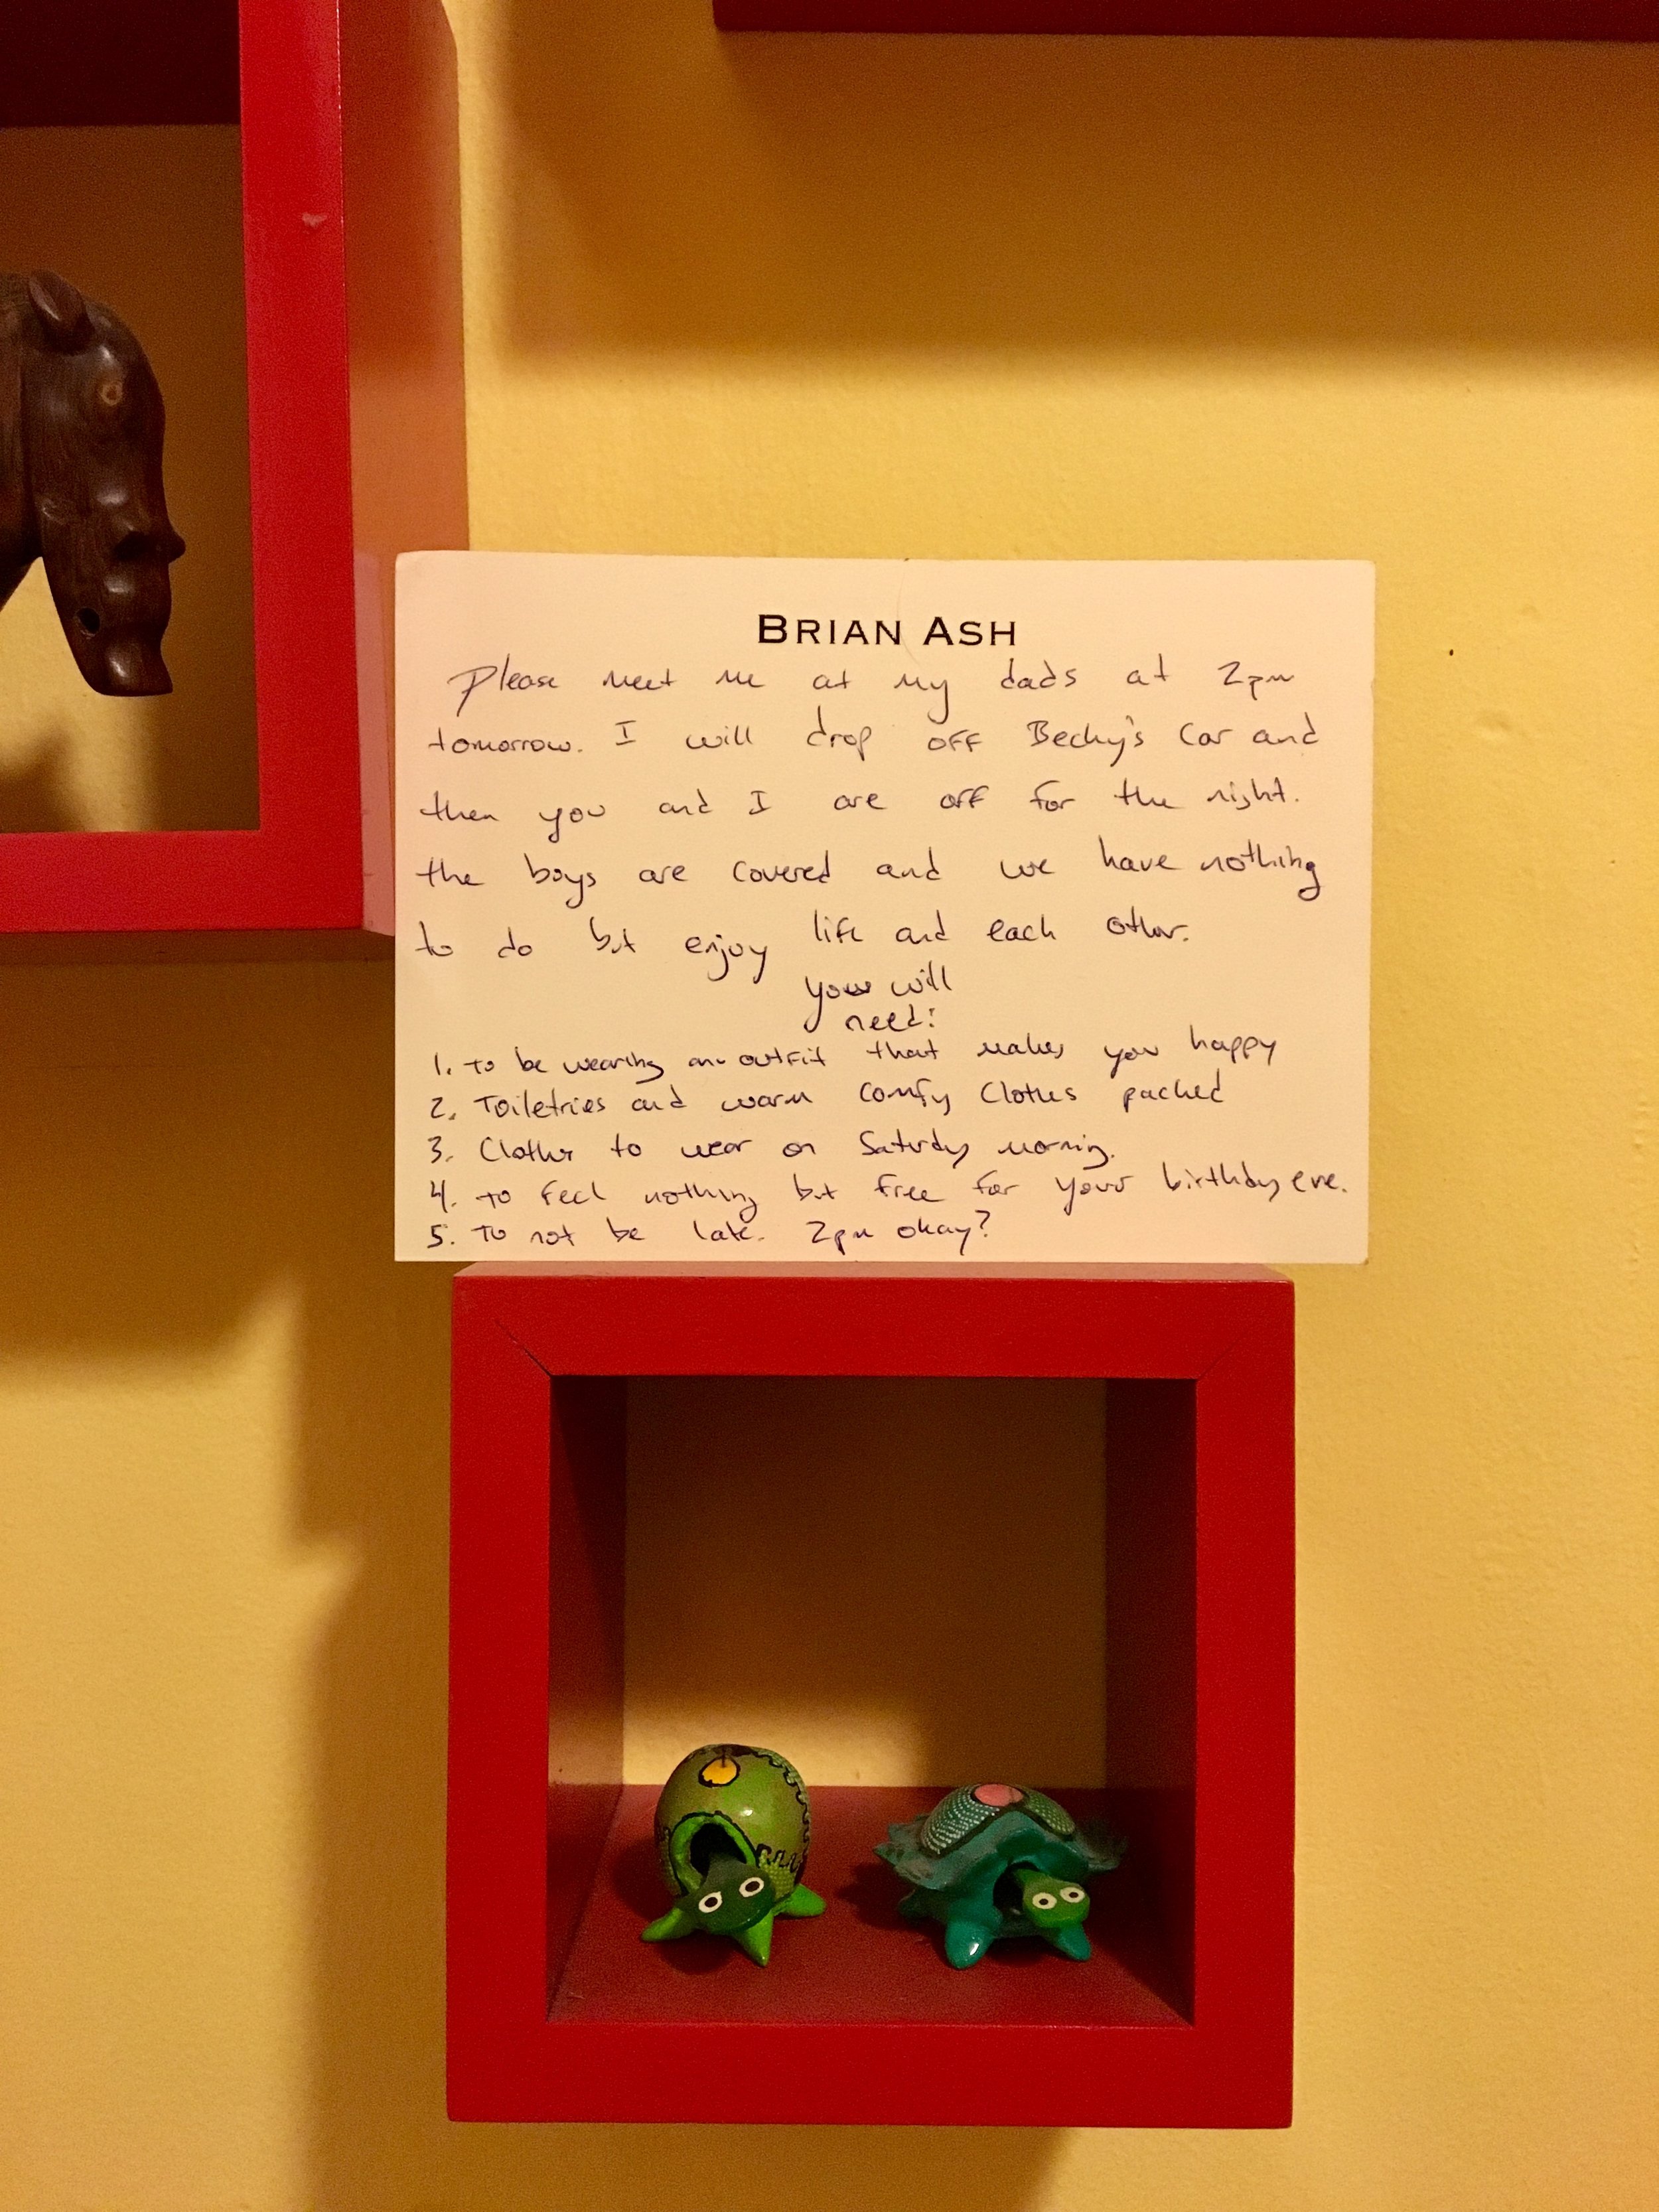 BRIAN ASH
Please meet me at my dads at 2pm
tomorrow. I will drop off Becky's car and
then you and I are off for the night.
the boys are covered and we have nothing
to do but enjoy life and each other.
you will
need:
1. to be wearing an outfit that makes you happy
2. Toiletries and warm comfy clothes packed
3. Clothes to wear on Saturday morning.
4. to feel nothing but free for your birthday eve.
5. To not be late. 2pm okay?